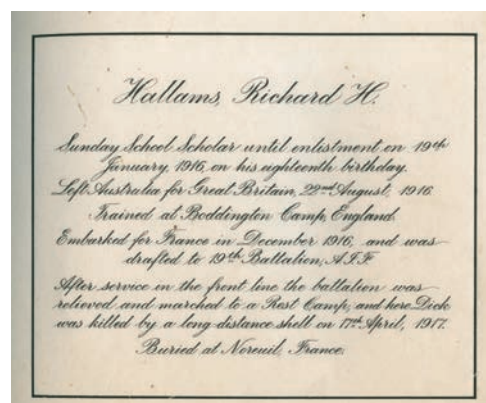 Hallams, Richard H.
Sunday School Scholar until enlistment on 19th
January, 1916, on his eighteenth birthday.
Left Australia for Great Britain, 22nd August, 1916
Trained at Boddington Camp, England.
Embarked for France in December 1916, and was
drafted to 19th Battalion, A.I.F.
After service in the front line the battalion was
relieved and marched to a Rest Camp, and here Dick
was killed by a long distance shell on 17th April, 1917.
Buried at Noreuil, France.